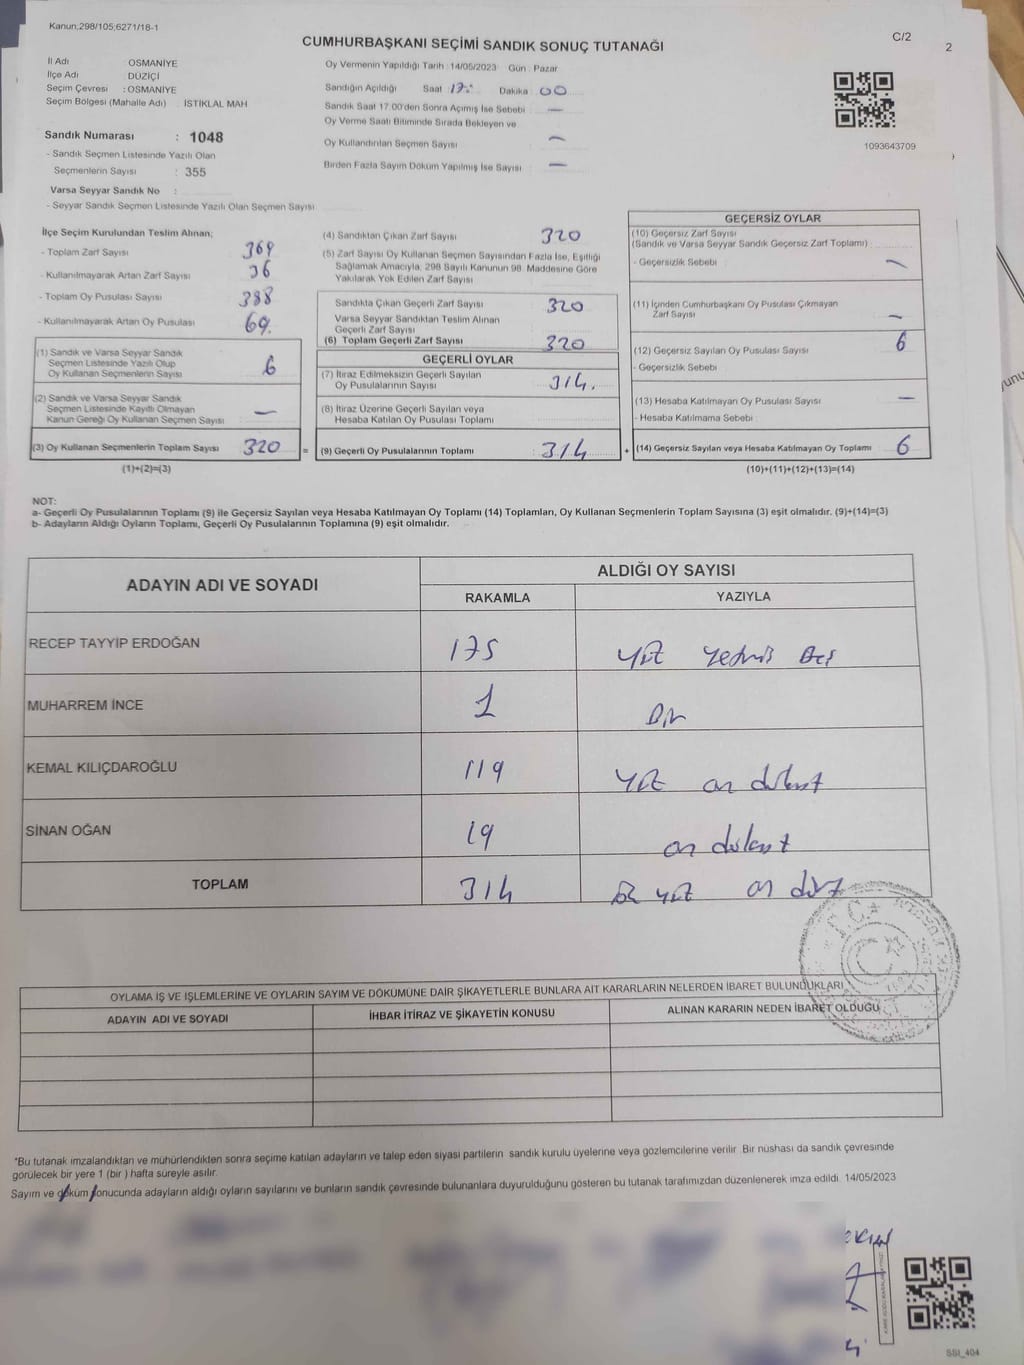 Kanun;298/105;6271/18-1
C/2
2
CUMHURBAŞKANI SEÇİMİ SANDIK SONUÇ TUTANAĞI
İl Adı OSMANİYE
İlçe Adı DÜZİÇİ
Seçim Çevresi : OSMANİYE
Seçim Bölgesi (Mahalle Adı) : İSTİKLAL MAH
Sandık Numarası : 1048
- Sandık Seçmen Listesinde Yazılı Olan
Seçmenlerin Sayısı : 355
Varsa Seyyar Sandık No :
- Seyyar Sandık Seçmen Listesinde Yazılı Olan Seçmen Sayısı
Oy Vermenin Yapıldığı Tarih : 14/05/2023 Gün : Pazar
Sandığın Açıldığı Saat 17: Dakika 00
Sandık Saat 17.00'den Sonra Açılmış İse Sebebi : —
Oy Verme Saati Bitiminde Sırada Bekleyen ve
Oy Kullandırılan Seçmen Sayısı —
Birden Fazla Sayım Döküm Yapılmış İse Sayısı : —
1093643709
İlçe Seçim Kurulundan Teslim Alınan;
- Toplam Zarf Sayısı 369
- Kullanılmayarak Artan Zarf Sayısı 36
- Toplam Oy Pusulası Sayısı 388
- Kullanılmayarak Artan Oy Pusulası 69
(1) Sandık ve Varsa Seyyar Sandık
Seçmen Listesinde Yazılı Olup
Oy Kullanan Seçmenlerin Sayısı 6
(2) Sandık ve Varsa Seyyar Sandık
Seçmen Listesinde Kayıtlı Olmayan
Kanun Gereği Oy Kullanan Seçmen Sayısı —
(3) Oy Kullanan Seçmenlerin Toplam Sayısı 320
(1)+(2)=(3)
(4) Sandıktan Çıkan Zarf Sayısı 320
(5) Zarf Sayısı Oy Kullanan Seçmen Sayısından Fazla İse, Eşitliği
Sağlamak Amacıyla; 298 Sayılı Kanunun 98. Maddesine Göre
Yakılarak Yok Edilen Zarf Sayısı
Sandıkta Çıkan Geçerli Zarf Sayısı 320
Varsa Seyyar Sandıktan Teslim Alınan
Geçerli Zarf Sayısı
(6) Toplam Geçerli Zarf Sayısı 320
GEÇERLİ OYLAR
(7) İtiraz Edilmeksizin Geçerli Sayılan
Oy Pusulalarının Sayısı 314.
(8) İtiraz Üzerine Geçerli Sayılan veya
Hesaba Katılan Oy Pusulası Toplamı
= (9) Geçerli Oy Pusulalarının Toplamı 314
GEÇERSİZ OYLAR
(10) Geçersiz Zarf Sayısı
(Sandık ve Varsa Seyyar Sandık Geçersiz Zarf Toplamı)
- Geçersizlik Sebebi : —
(11) İçinden Cumhurbaşkanı Oy Pusulası Çıkmayan
Zarf Sayısı —
(12) Geçersiz Sayılan Oy Pusulası Sayısı 6
- Geçersizlik Sebebi
(13) Hesaba Katılmayan Oy Pusulası Sayısı —
- Hesaba Katılmama Sebebi :
+ (14) Geçersiz Sayılan veya Hesaba Katılmayan Oy Toplamı 6
(10)+(11)+(12)+(13)=(14)
NOT:
a- Geçerli Oy Pusulalarının Toplamı (9) ile Geçersiz Sayılan veya Hesaba Katılmayan Oy Toplamı (14) Toplamları, Oy Kullanan Seçmenlerin Toplam Sayısına (3) eşit olmalıdır. (9)+(14)=(3)
b- Adayların Aldığı Oyların Toplamı, Geçerli Oy Pusulalarının Toplamına (9) eşit olmalıdır.
ADAYIN ADI VE SOYADI
ALDIĞI OY SAYISI
RAKAMLA YAZIYLA
RECEP TAYYİP ERDOĞAN 175 yüz yetmiş beş
MUHARREM İNCE 1 bir
KEMAL KILIÇDAROĞLU 119 yüz on dokuz
SİNAN OĞAN 19 on dokuz
TOPLAM 314 üç yüz on dört
T.C.
OYLAMA İŞ VE İŞLEMLERİNE VE OYLARIN SAYIM VE DÖKÜMÜNE DAİR ŞİKAYETLERLE BUNLARA AİT KARARLARIN NELERDEN İBARET BULUNDUKLARI
ADAYIN ADI VE SOYADI İHBAR İTİRAZ VE ŞİKAYETİN KONUSU ALINAN KARARIN NEDEN İBARET OLDUĞU
*Bu tutanak imzalandıktan ve mühürlendikten sonra seçime katılan adayların ve talep eden siyasi partilerin sandık kurulu üyelerine veya gözlemcilerine verilir. Bir nüshası da sandık çevresinde
görülecek bir yere 1 (bir ) hafta süreyle asılır.
Sayım ve döküm sonucunda adayların aldığı oyların sayılarını ve bunların sandık çevresinde bulunanlara duyurulduğunu gösteren bu tutanak tarafımızdan düzenlenerek imza edildi. 14/05/2023
SSI_404